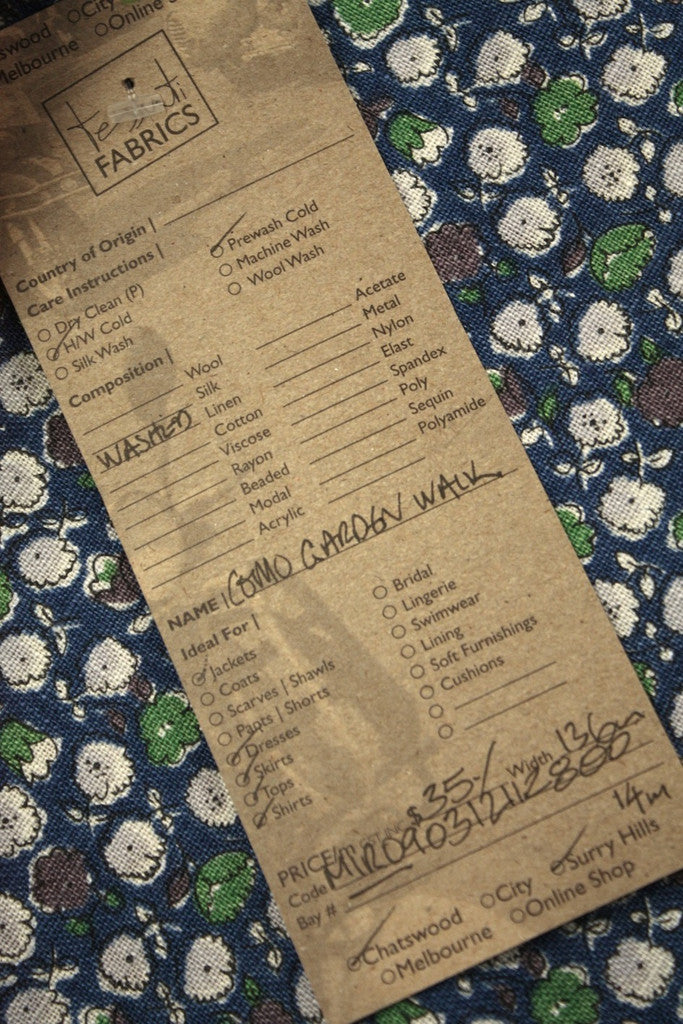 swood ○City
Melbourne ○Online
tessuti
FABRICS
Country of Origin |
Care Instructions |
○ Dry Clean (P)
○ H/W Cold
○ Silk Wash
○ Prewash Cold
○ Machine Wash
○ Wool Wash
Composition |
Wool
Silk
WASHED Linen
Cotton
Viscose
Rayon
Beaded
Modal
Acrylic
Acetate
Metal
Nylon
Elast
Spandex
Poly
Sequin
Polyamide
NAME | COMO GARDEN WALK
Ideal For |
○ Jackets
○ Coats
○ Scarves | Shawls
○ Pants | Shorts
○ Dresses
○ Skirts
○ Tops
○ Shirts
○ Bridal
○ Lingerie
○ Swimwear
○ Lining
○ Soft Furnishings
○ Cushions
○
○
PRICE/m $35-/ Width 136cm
Code
Bay # 14m
○Chatswood ○City ○Surry Hills
○Melbourne ○Online Shop